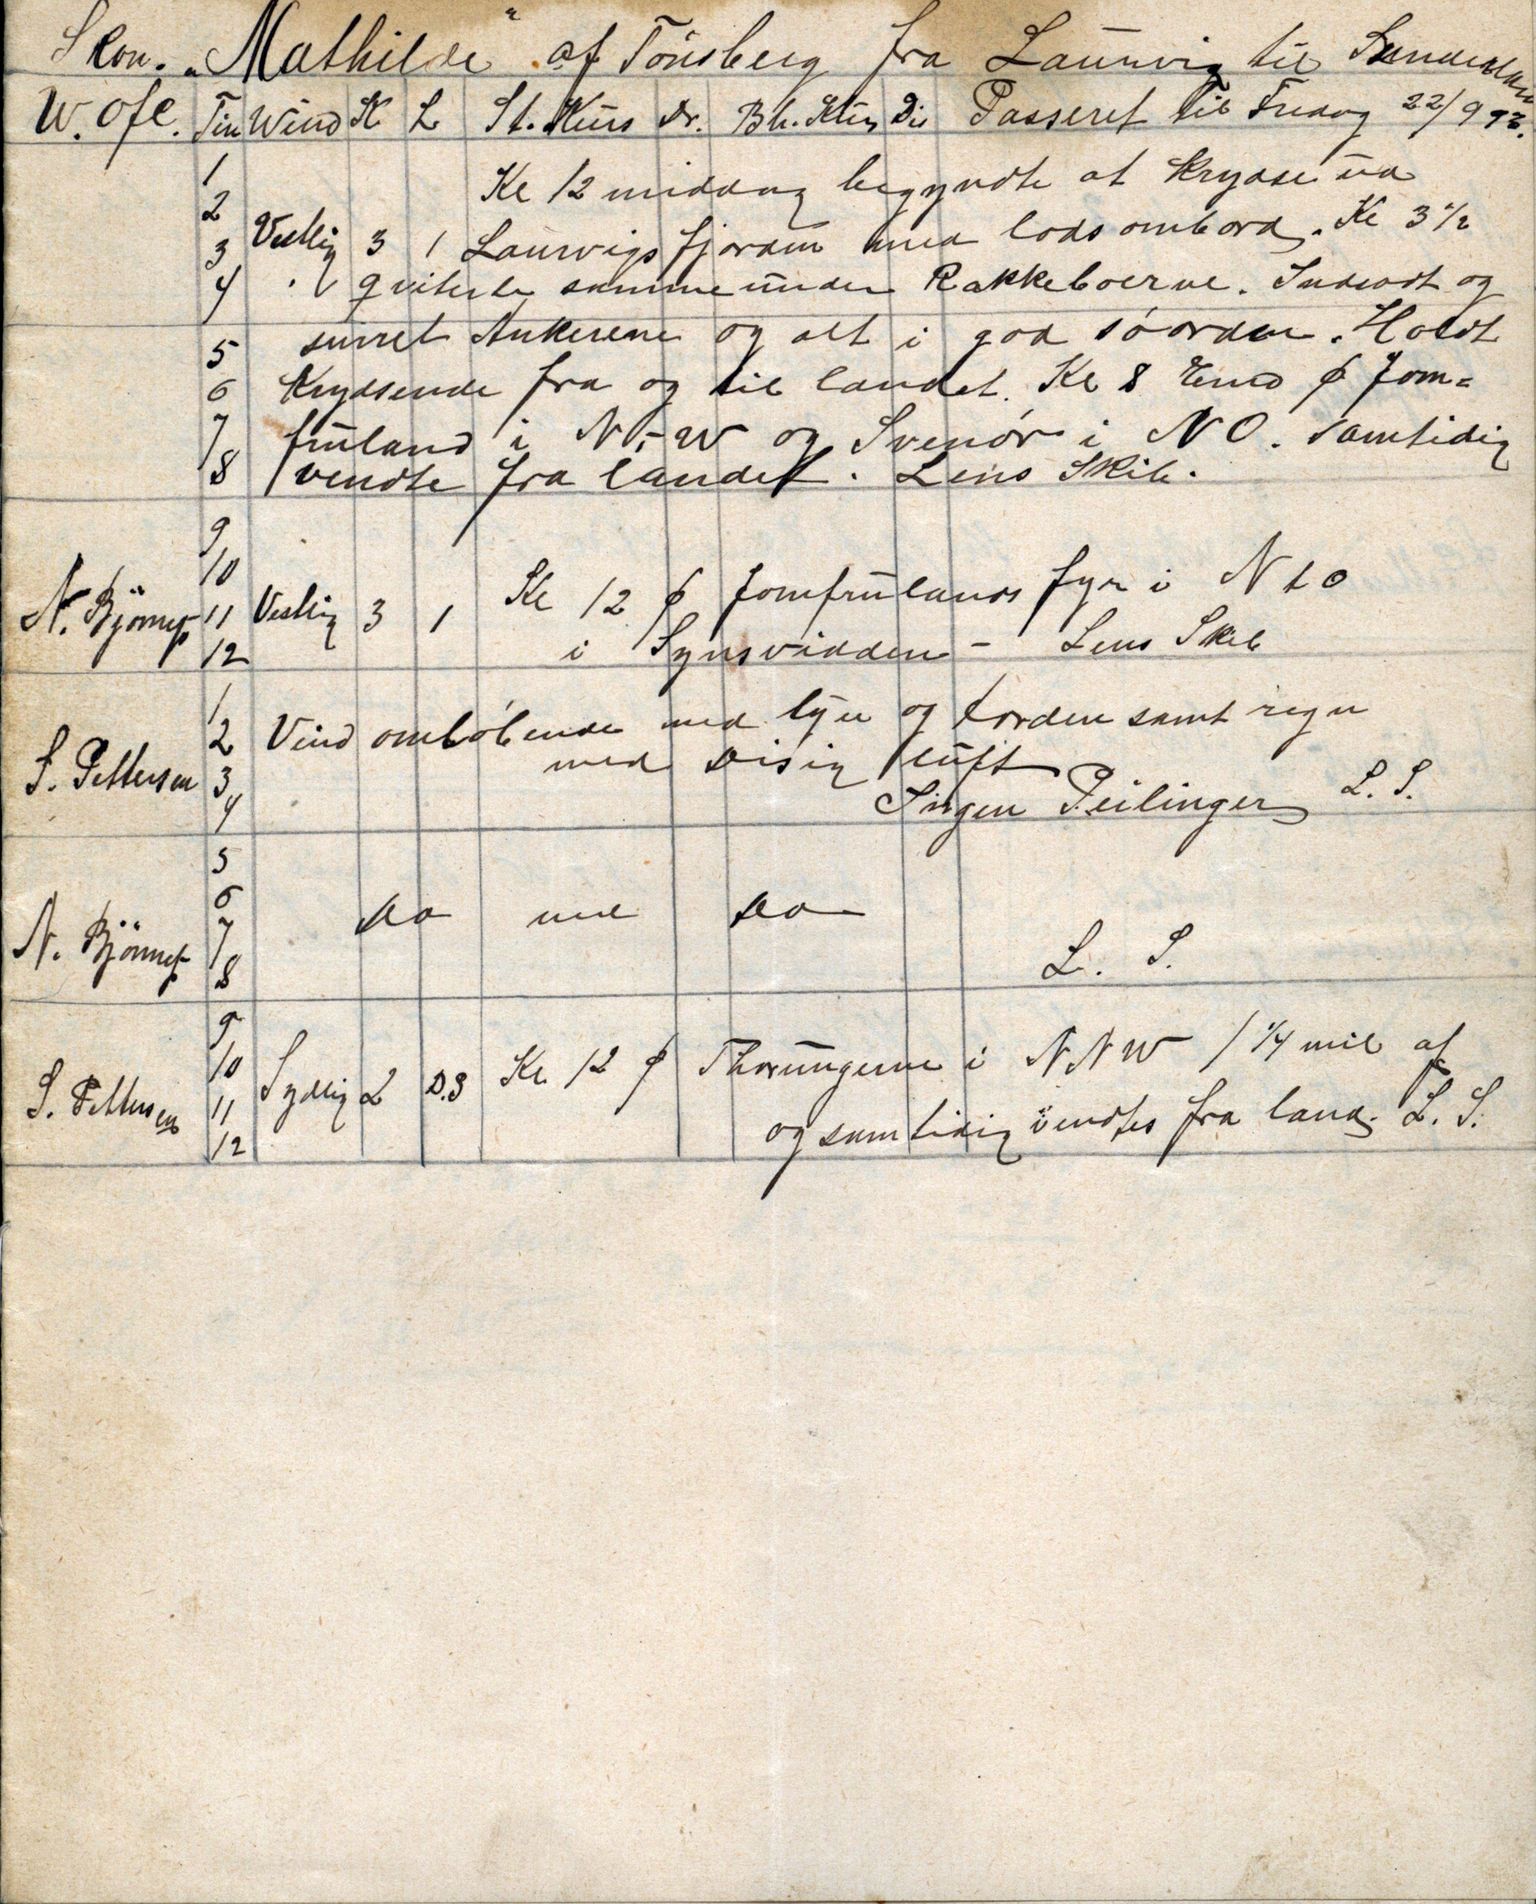 Skon. „Mathilde" af Tönsberg fra Laurvig til Sunderland
W. Ofc. Tim Wind K L St. Kurs Dr. Bh. Kurs Dis Passeret til Fredag 22/9 93.
1 Kl 12 middag begyndte at krydse ud
2
3 Vestlig 3 1 Laurvigs fjorden med lods ombord. Kl 3 1/2
4 qviterte samme under Rakkeboerne. Indsadt og
5 surret Ankerene og alt i god söorden. Holdt
6 Krydsende fra og til landet. Kl 8 Emd ϕ Jom=
7 fruland i N-W og Svenör i NO. Samtidig
8 vendte fra landet. Lens Skib.
9
10
N. Björnes 11 Vestlig 3 1 Kl 12 ϕ Jomfrulands fyr i N t O
12 i Synsvidden - Lens Skib
1
2 Vind omlöbende med lyn og torden samt regn
S. Pettersen 3 med Disig luft
4 Ingen Peilinger L. S.
5
6 Do med Do
N. Björnes 7
8 L. S.
9
10 Sydlig 2 D.S Kl 12 ϕ Thorungerne i NNW 1 1/4 mil af
S. Pettersen 11 og samtidig vendtes fra land. L. S.
12